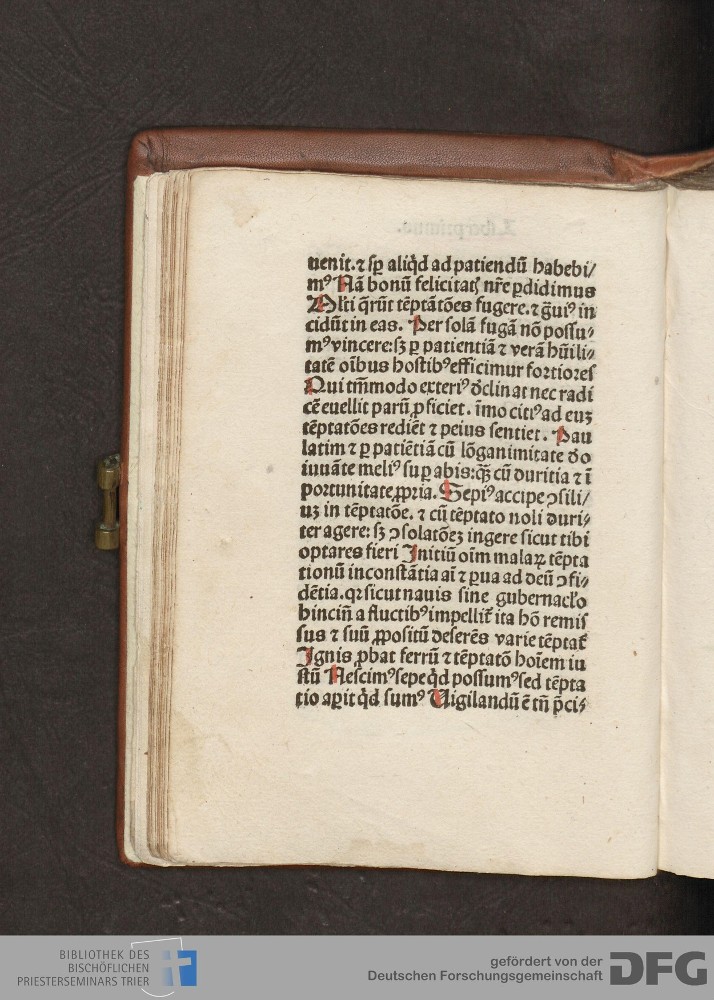 uenit.⁊ sꝑ aliq̇d ad patiendū habebi/
mꝰ Nā bonū felicitatꝭ nr̄e ꝑdidimus
Ml̓ti q̄rūt tēptatōes fugere.⁊ g̃uiꝰ in
cidūt in eas. Per solā fugā nō possu⸗
mꝰ vincere:sꝫ ꝑ patientiā ⁊ verā hūili⸗
tatē oībus hostibꝰ efficimur fortiores
Qui tm̄modo exteriꝰ declinat nec radi
cē euellit parū ꝓficiet. īmo citiꝰ ad euꝫ
tēptatōes rediēt ⁊ peius sentiet. Pau
latim ⁊ ꝑ patiētiā cū lōganimitate deo
iuuāte meliꝰ suꝑabis:qꝫ̄ cū duritia ⁊ ī
portunitate ꝓpria. Sepiꝰ accipe ꝯsili/
uꝫ in tēptatōe. ⁊ cū tēptato noli duri⸗
ter agere: sꝫ ꝯsolatōeꝫ ingere sicut tibi
optares fieri Initiū oīm malaꝝ tēpta
tionū inconstātia aī ⁊ ꝑua ad deū ꝯfi⸗
dētia.qꝛ sicut nauis sine gubernacl̓o
hincin̄ a fluctibꝰ impellit᷑ ita hō remis
sus ⁊ suū ꝓpositū deserēs varie tēptat᷑
Ignis ꝓbat ferrū ⁊ tēptatō hoīem iu
stū Nescimꝰ sepe qd̓ possumꝰ sed tēpta
tio aꝑit qd̓ sumꝰ Uigilandū ē tn̄ p̄ciꝰ
BIBLIOTHEK DES
BISCHÖFLICHEN
PRIESTERSEMINARS TRIER
gefördert von der
Deutschen Forschungsgemeinschaft
DFG